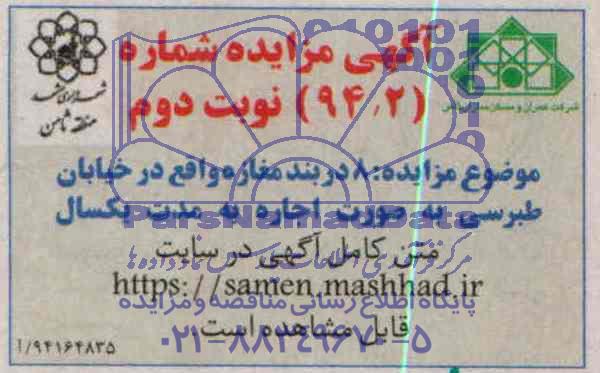 آگهی مزایده شماره
(۹۴٫۲) نوبت دوم
شهرداری مشهد
منطقه ثامن
شرکت عمران و مسکن سازان ثامن
موضوع مزایده: ۸ دربند مغازه واقع در خیابان
طبرسی به صورت اجاره به مدت یکسال
ParsNamadData
متن کامل آگهی در سایت
https://samen.mashhad.ir
پایگاه اطلاع رسانی مناقصه و مزایده
قابل مشاهده است
۰۲۱-۸۸۳۴۹۶۷۰-۵
۹۴۱۶۴۸۳۵/آ